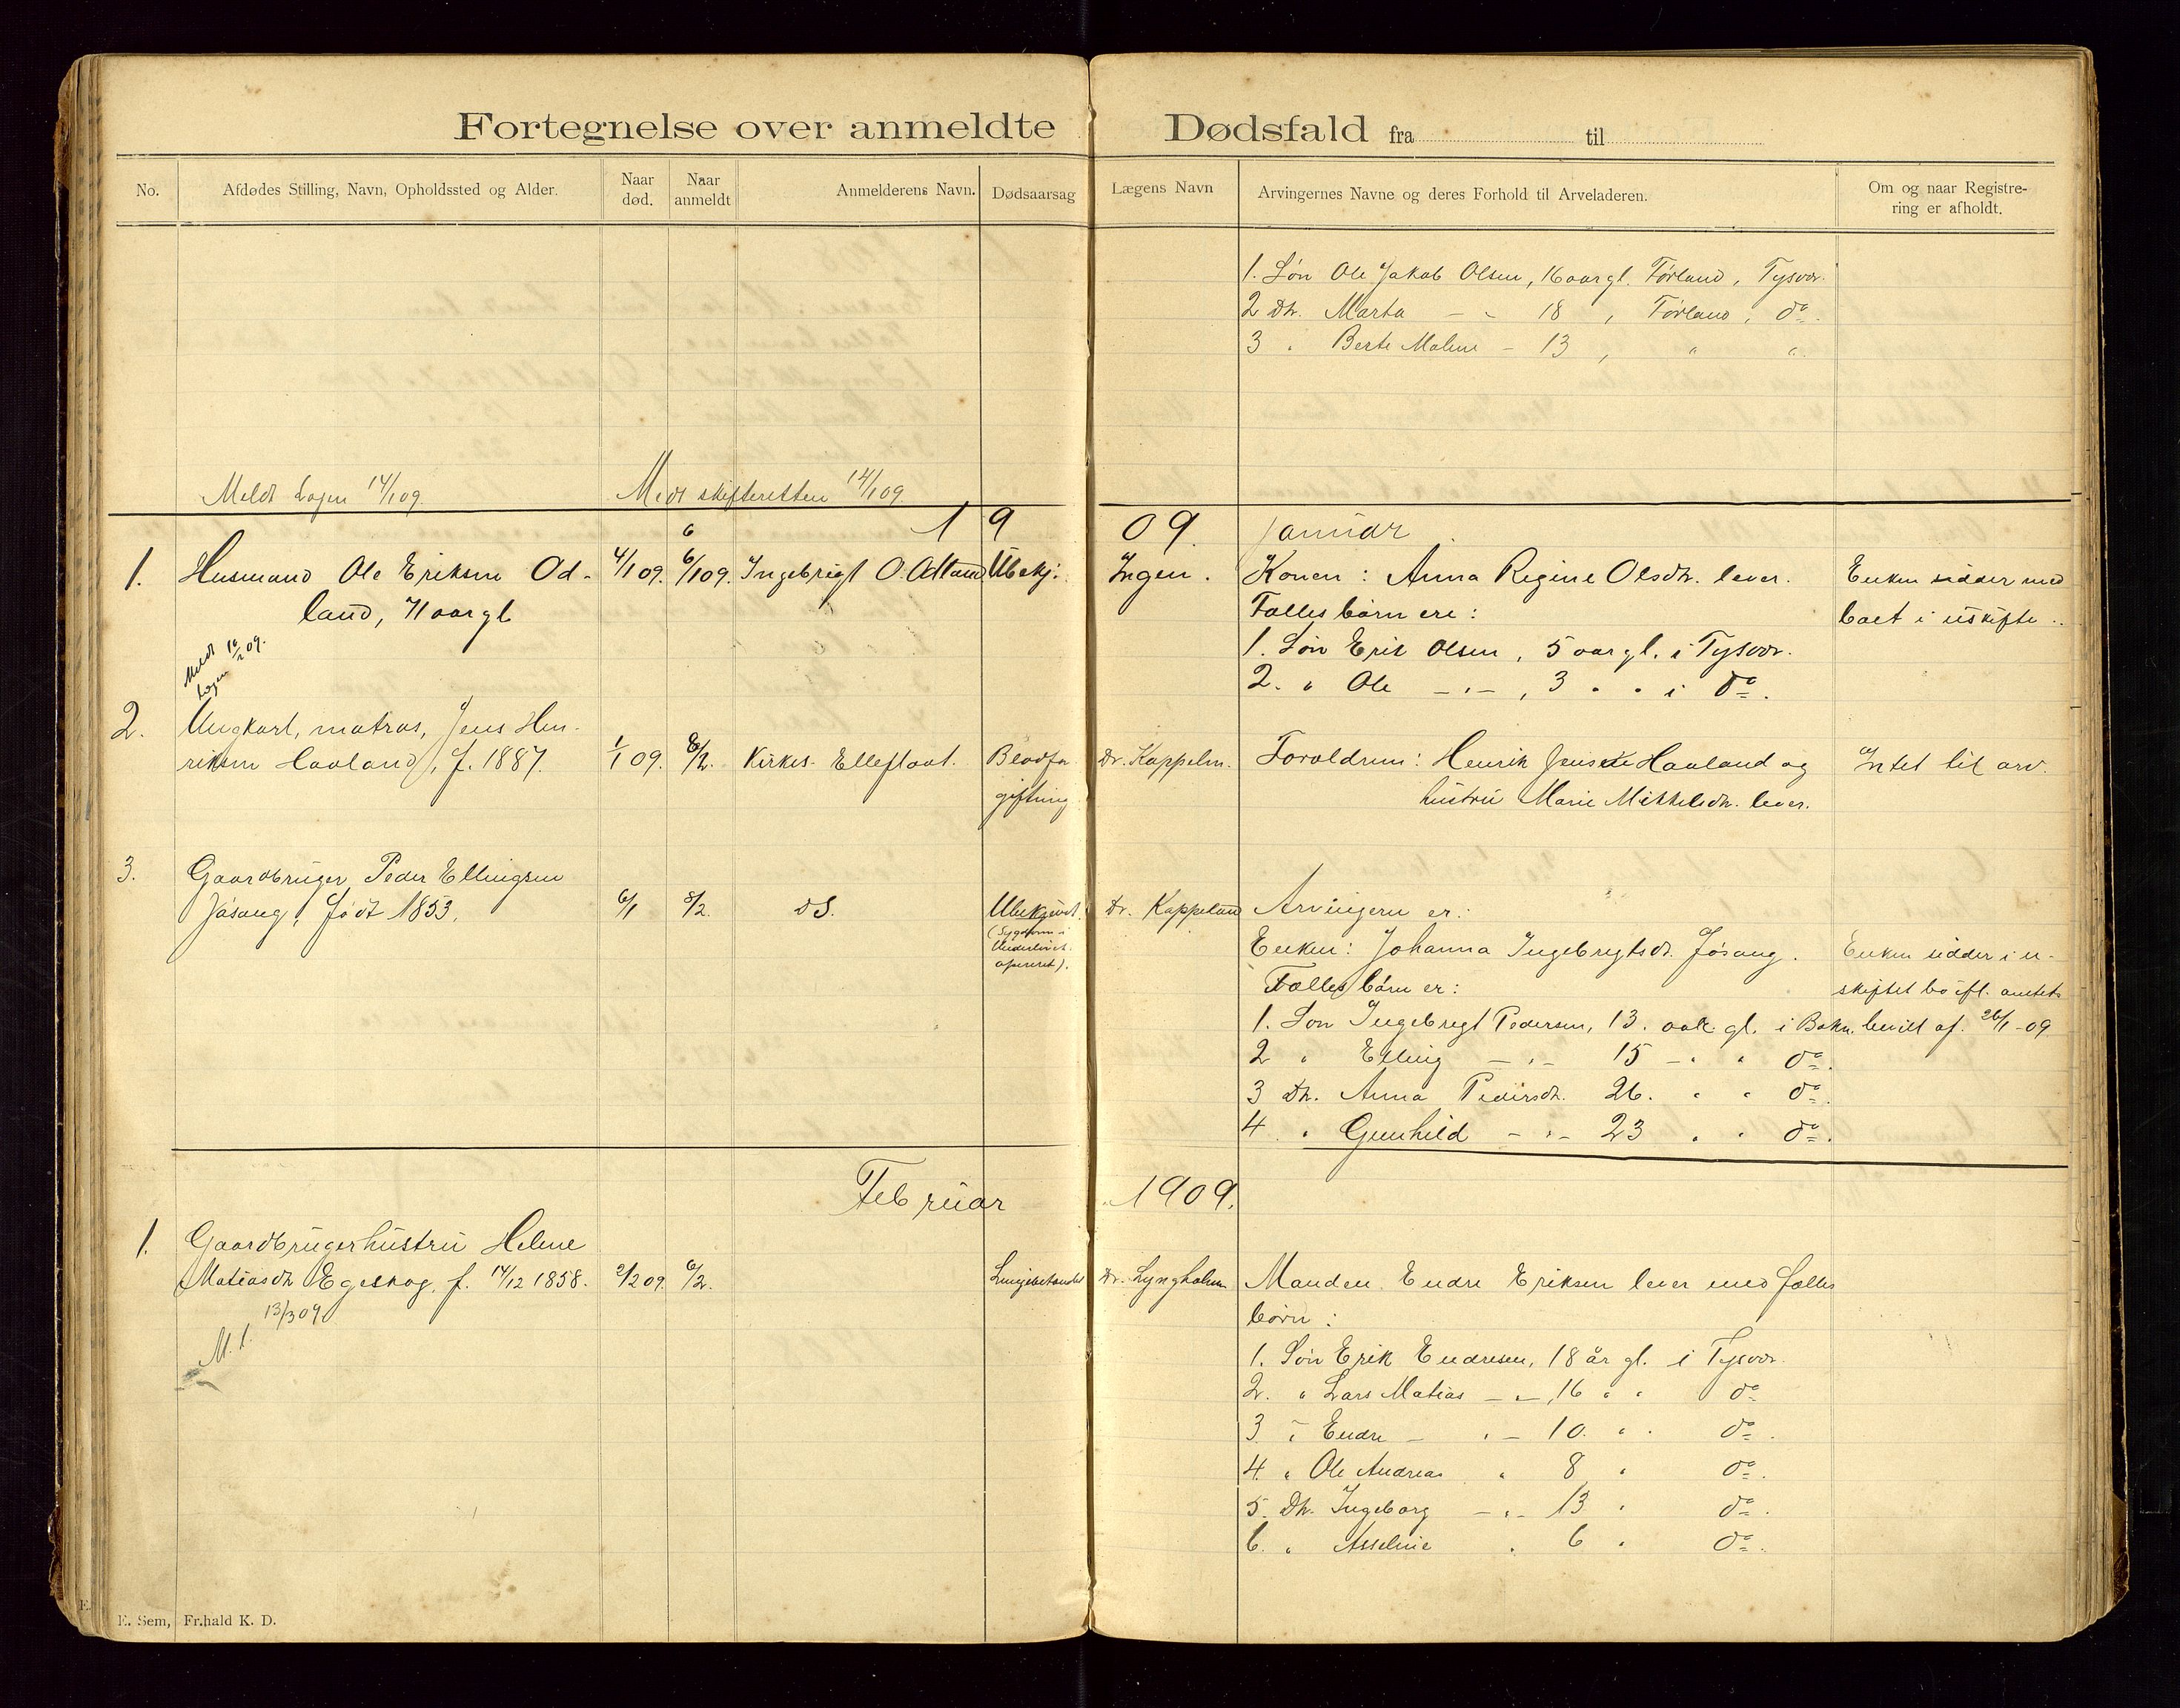 Fortegnelse over anmeldte Dødsfald fra til
No.
Afdødes Stilling, Navn, Opholdssted og Alder.
Naar død.
Naar anmeldt
Anmelderens Navn.
Dødsaarsag
Lægens Navn
Arvingernes Navne og deres Forhold til Arveladeren.
Om og naar Registre-
ring er afholdt.
1. Søn Ole Jakob Olsen, 16 aar gl. Førland, Tysvær.
2 Dtr. Marta - " 18 , Førland, do.
3 " Berte Malene - 13 , " "
Meldt Logen 14/1 09. Meldt skifteretten 14/1 09
1909. Januar
1. Husmand Ole Eriksen Od- 4/1 09. 6/1 09. Ingebrigt O. Odland Ubekj. Ingen. Konen: Anna Regine Olsdtr. lever. Enken sidder med
land, 71 aar gl Fælles børn ere: boet i uskifte.
1. Søn Erik Olsen, 5 aar gl. i Tysvær.
Meldt Logen 10/2 09.
2. " Ole -"- , 3 " " i do.
2. Ungkarl, matros, Jens Hen-
riksen Haaland, f. 1887. 1/1 09. 8/2. Kirkes. Elleflaat. Blodfor Dr. Kappelm. Foræeldrene: Henrik Jens Haaland og Intet til arv.
giftning hustru Marie Mikkelsdtr. lever.
3. Gaardbruger Peder Ellingsen
Jøsang, født 1853. 6/1 8/2. dS. Ubekjendt. Dr. Kappelm Arvingern er:
(Sygdom i
Underlivet.
opereret).
Enken: Johanna Ingebrigtsdtr. Jøsang. Enken sidder i u-
Fælles børn er: skiftet bo ifl. amtets
1. Søn Ingebrigt Pedersen, 13. aar gl. i Bokn. bevill af 26/1-09
2 " Elling -"- 15 - " " do.
3 Dtr. Anna Pedersdtr. 26. " " do.
4 " Gunhild -"- 23 " " do.
Februar 1909.
1. Gaardbrugerhustru Helene
Matiasdtr Egeskog. f. 14/12 1858. 2/2 09. 6/2. Lungebetændel Dr. Lyngholm. Manden Endre Eriksen lever med fælles
M. L. 13/3 09
børn:
1. Søn Erik Endresen, 18 år gl. i Tysvær.
2. " Lars Matias -"- 16 " " do
3 " Endre - "- 10. " " do.
4. " Ole Andreas " 8 " do.
5. Dtr. Ingeborg -"- 13 " do.
6. " Asseline " 6 " do.
E. Sem, Fr.hald K. D.